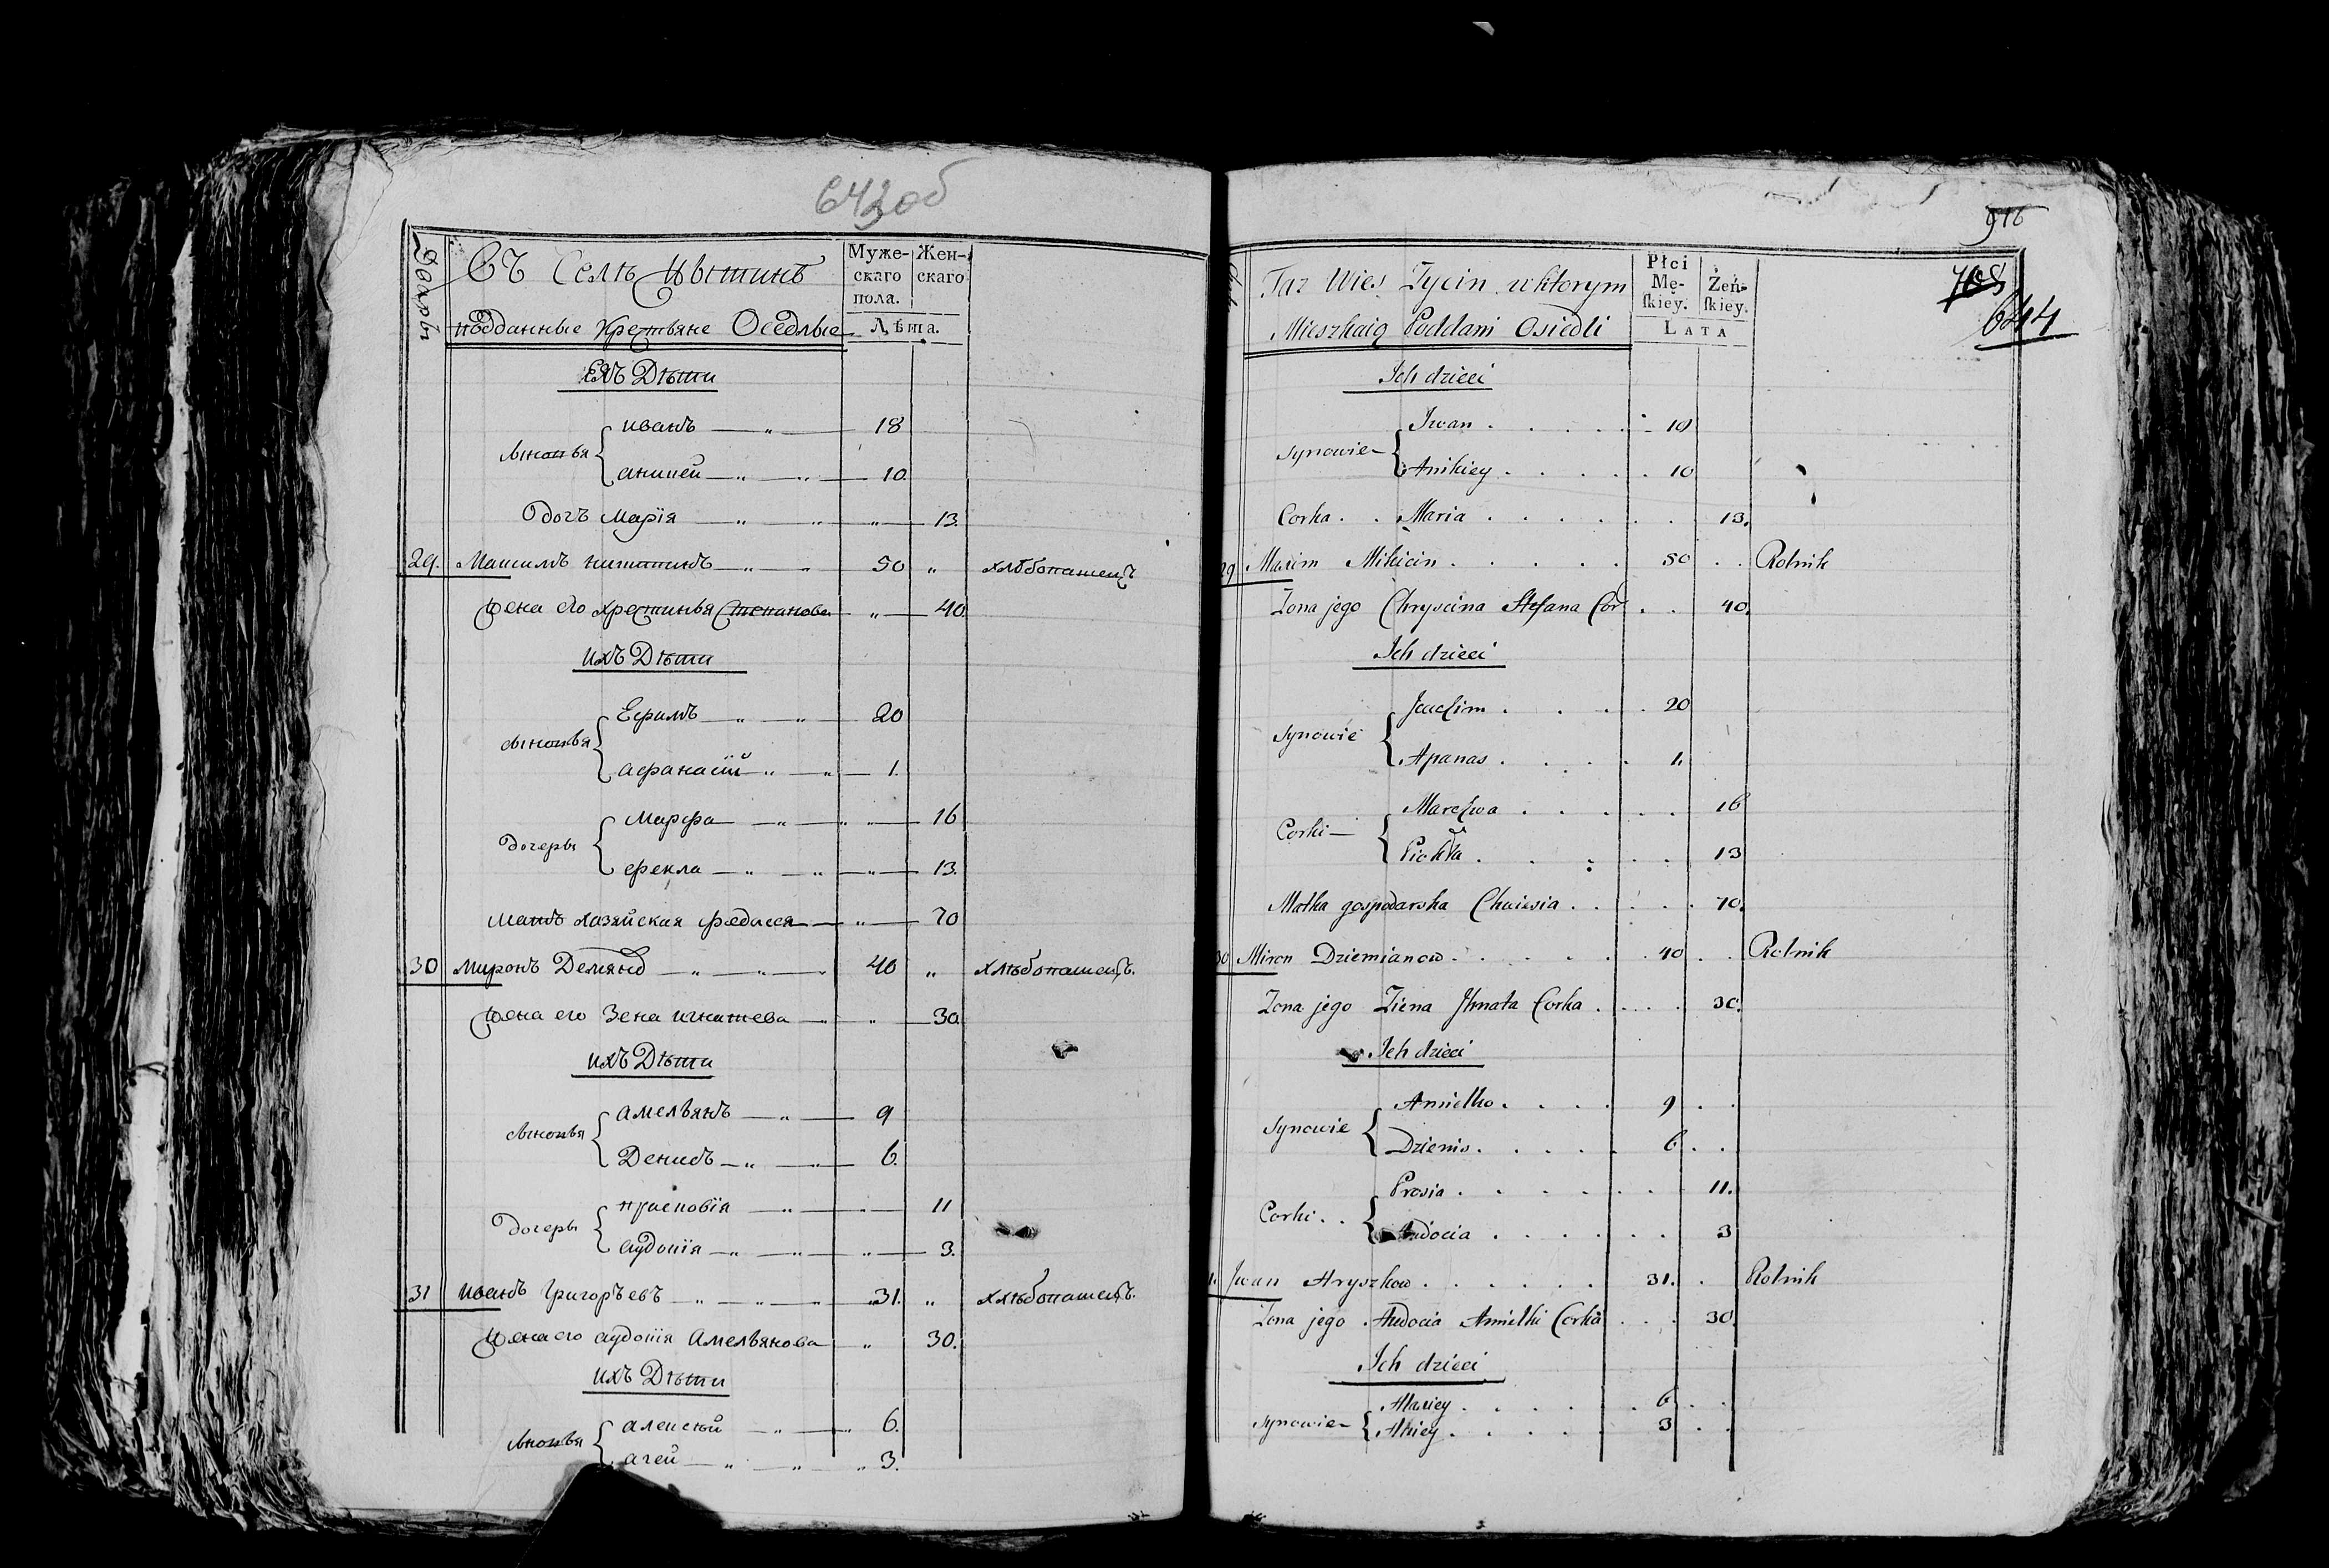 643об
Дворы
Въ Селѣ Цытинѣ
подданные Крестьяне Оседлые
Муже-
скаго
пола.
Жен-
скаго
Лѣта.
Ихъ Дѣти
сыновья
иванъ 18
аникей 10
Дочь Марїя 13.
29. Максимъ никитинъ 50 хлѣбопашецъ
Жена его Хрестинья Степанова 40.
ихъ Дѣти
сыновья
Ефимъ 20
афанасїй 1.
Дочеры
Марфа 16
фекла 13.
Мать хазяйская федосея 70
30 Миронъ Демянов 40 хлѣбопашецъ.
Жена его Зена игнатева 30
ихъ Дѣти
сыновья
амельянъ 9
Денисъ 6.
Дочеры
прасковїя 11
аудокїя 3.
31 иванъ Григорьевъ 31. хлѣбопашецъ.
Жена его аудокїя Амельянова 30.
ихъ Дѣти
сыновья
алексѣй 6.
агей 3.
916
708
644
Taż Wies Życin w ktorym
Mieszkaią Poddani Osiedli
Płci
Mę-
skiey.
Żeń-
skiey.
Lata
Ich dzieci
Synowie
Iwan 10
Anikiey 10
Corka Maria 13.
29 Maxim Mikicin 50 Rolnik
Zona jego Chryscina Stefana Cor 40.
Ich dzieci
Synowie
Joachim 20
Apanas 1.
Corki
Marchwa 16
13
Matka gospodarska Chwiesia 70.
30 Miron Dziemianow 40 Rolnik
Zona jego Ziena Ihnata Corka 30.
Ich dzieci
Synowie
Amielko 9
Dzienis 6
Corki
Prosia 11.
Audocia 3
Iwan Hryszkow 31. Rolnik
Zona jego Audocia Amielki Corka 30.
Ich dzieci
Synowie
Alaxiey 6
Ahiey 3